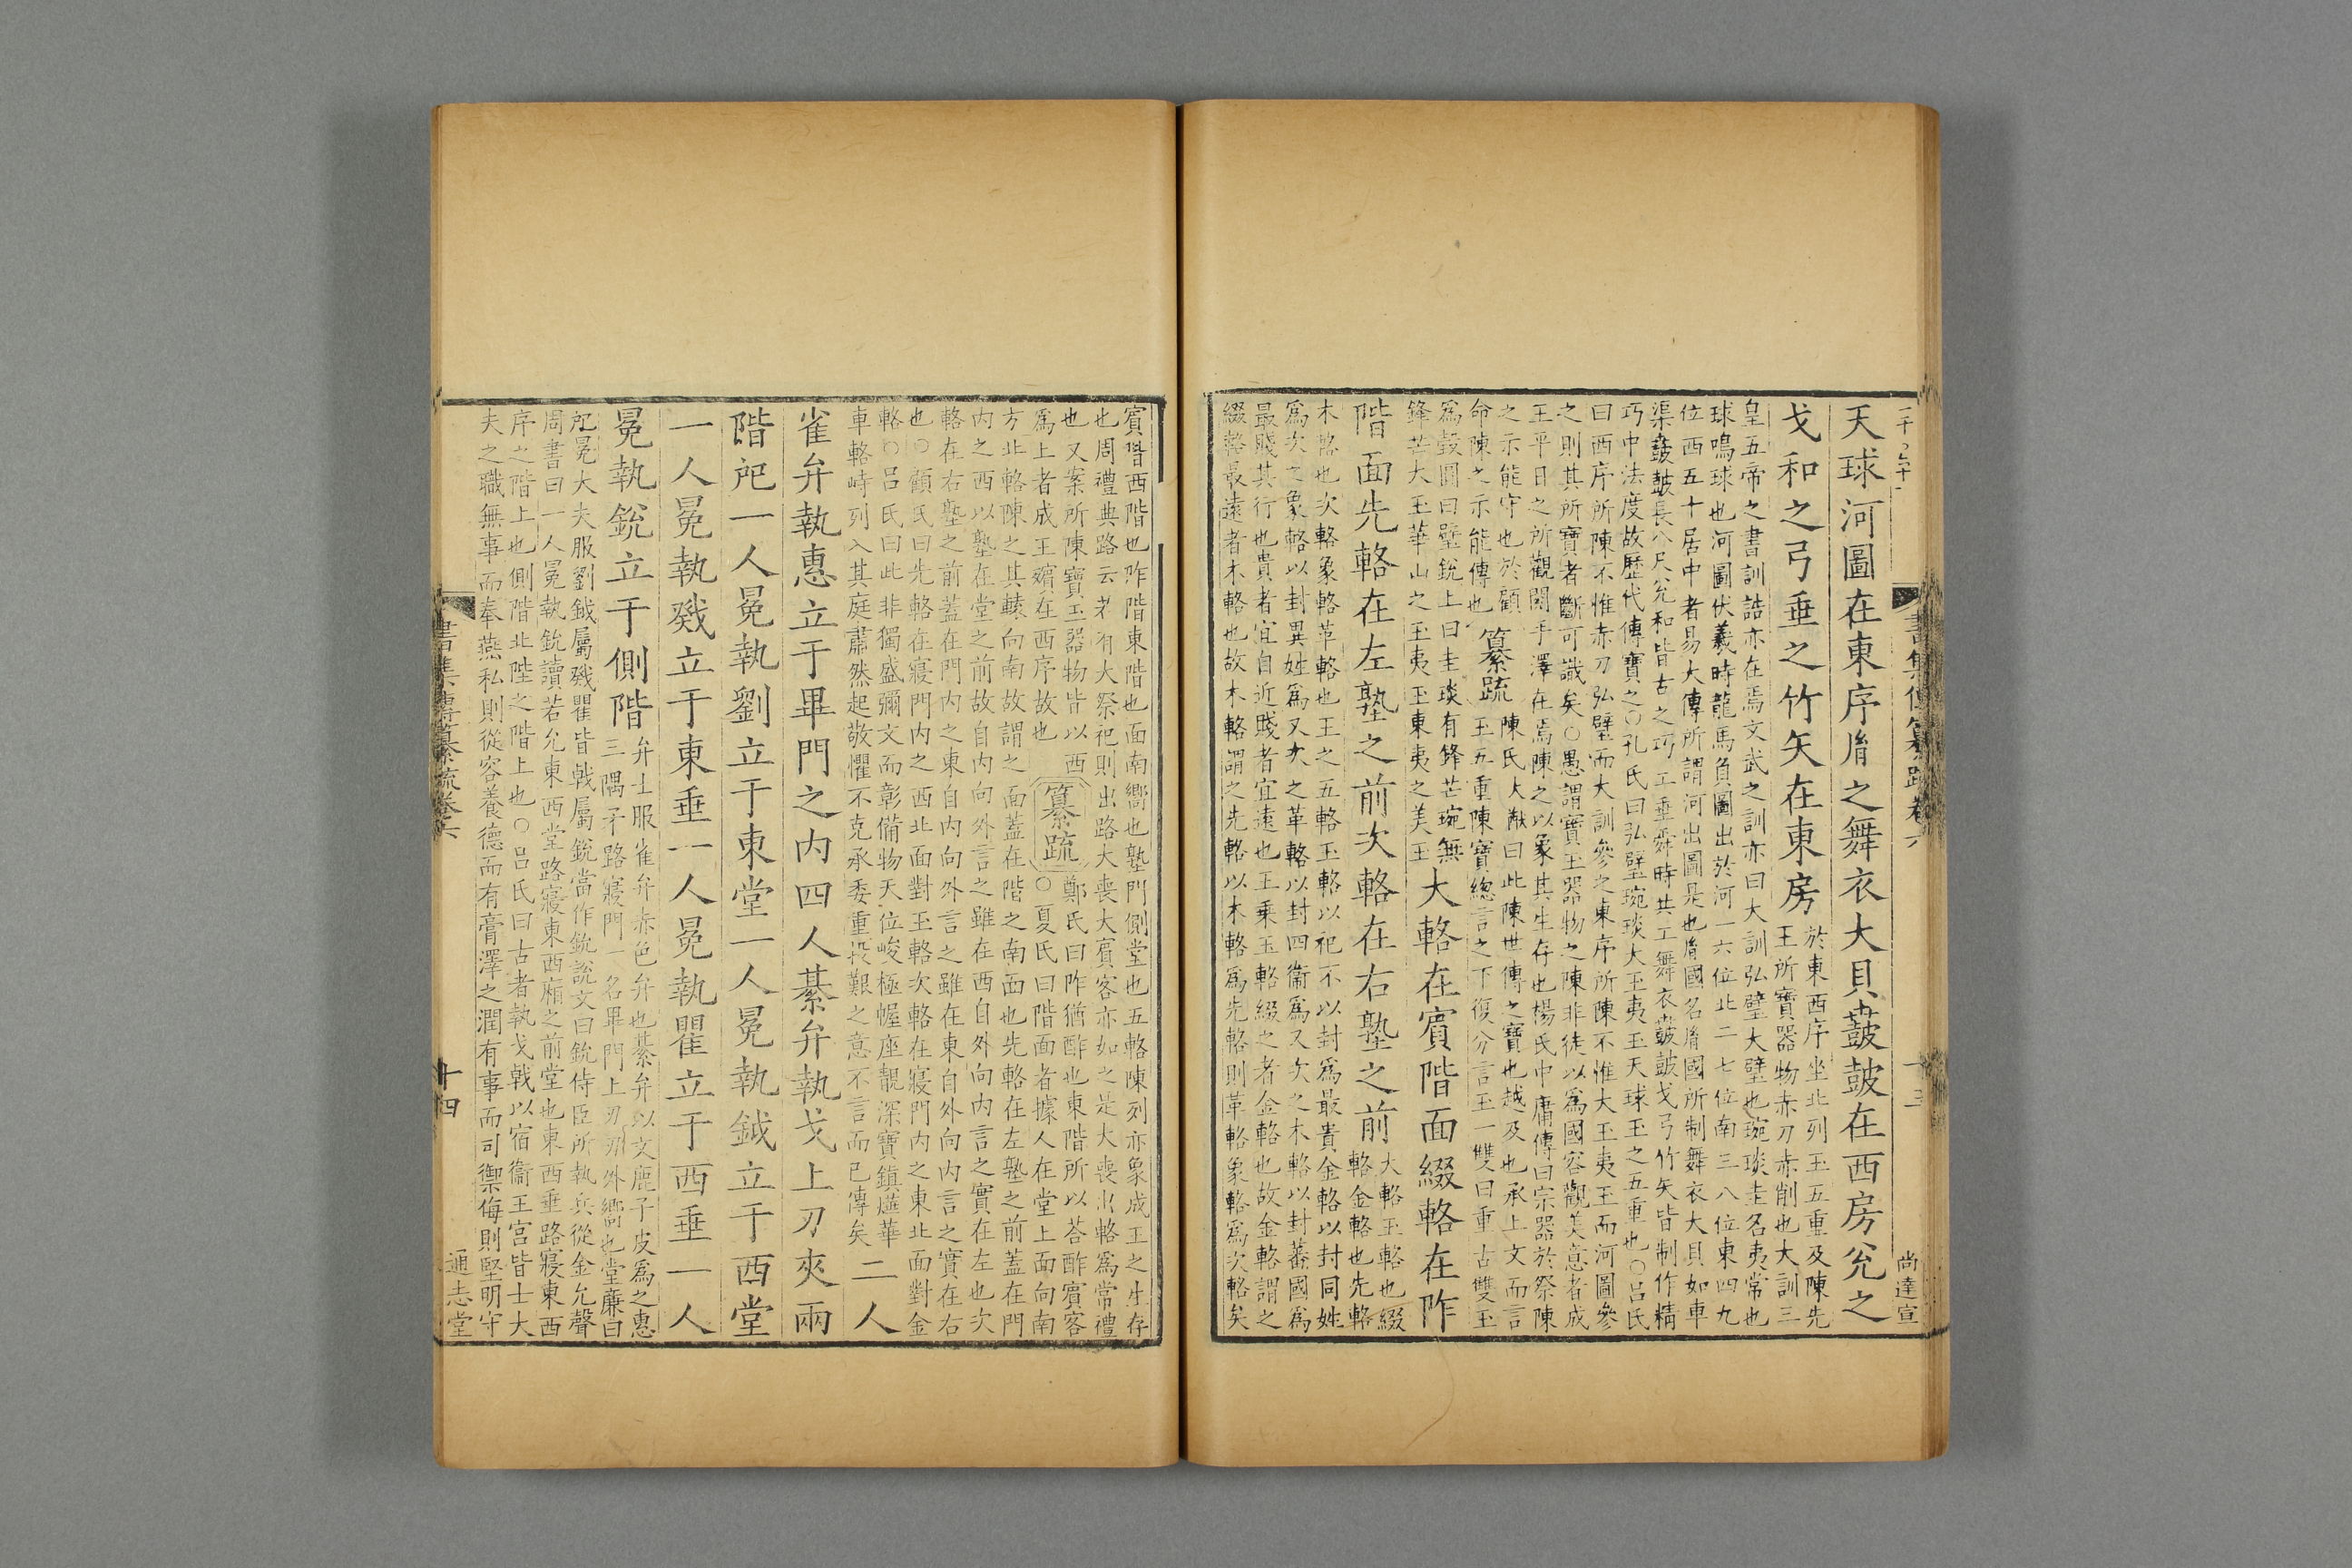 書集傳纂疏卷六
十三
尚達宣
天球河圖在東序胤之舞衣大貝鼖鼓在西房兊之
戈和之弓垂之竹矢在東房
於東西序坐北列玉五重及陳先
王所寶器物赤刀赤削也大訓三
皇五帝之書訓誥亦在焉文武之訓亦曰大訓弘璧大璧也琬琰圭名夷常也
球鳴球也河圖伏羲時龍馬負圖出於河一六位北二七位南三八位東四九
位西五十居中者易大傳所謂河出圖是也胤國名胤國所制舞衣大貝如車
渠鼖鼓長八尺兊和皆古之巧工垂舜時共工舞衣鼖鼓戈弓竹矢皆制作精
巧中法度故歷代傳寶之○孔氏曰弘璧琬琰大玉夷玉天球玉之五重也○呂氏
曰西序所陳不惟赤刀弘璧而大訓參之東序所陳不惟大玉夷玉而河圖參
之則其所寶者斷可識矣○愚謂寶玉器物之陳非徒以爲國容觀美意者成
王平日之所觀閱手澤在焉陳之以象其生存也楊氏中庸傳曰宗器於祭陳
之示能守也於顧
命陳之示能傳也
纂疏
陳氏大猷曰此陳世傳之寶也越及也承上文而言
玉五重陳寶總言之下復分言玉一雙曰重古雙玉
爲瑴圓曰璧銳上曰圭琰有鋒芒琬無
鋒芒大玉華山之玉夷玉東夷之美玉
大輅在賓階面綴輅在阼
階面先輅在左塾之前次輅在右塾之前
大輅玉輅也綴
輅金輅也先輅
木輅也次輅象輅革輅也王之五輅玉輅以祀不以封爲最貴金輅以封同姓
爲次之象輅以封異姓爲又次之革輅以封四衞爲又次之木輅以封蕃國爲
最賤其行也貴者宜自近賤者宜遠也王乘玉輅綴之者金輅也故金輅謂之
綴輅最遠者木輅也故木輅謂之先輅以木輅爲先輅則革輅象輅爲次輅矣
賓階西階也阼階東階也面南嚮也塾門側堂也五輅陳列亦象成王之生存
也周禮典路云若有大祭祀則出路大喪大賓客亦如之是大喪出輅爲常禮
也又案所陳寶玉器物皆以西
爲上者成王殯在西序故也
纂疏
鄭氏曰阼猶酢也東階所以荅酢賓客
○夏氏曰階面者據人在堂上面向南
方北輅陳之其轅向南故謂之面蓋在階之南面也先輅在左塾之前蓋在門
内之西以塾在堂之前故自内向外言之雖在西自外向内言之實在左也次
輅在右塾之前蓋在門内之東自内向外言之雖在東自外向内言之實在右
也○顧氏曰先輅在寢門内之西北面對玉輅次輅在寢門内之東北面對金
輅○呂氏曰此非獨盛彌文而彰備物天位峻極幄座靚深寶鎮燁華
車輅峙列入其庭肅然起敬懼不克承委重投艱之意不言而已傳矣
二人
雀弁執惠立于畢門之内四人綦弁執戈上刃夾兩
階戺一人冕執劉立于東堂一人冕執鉞立于西堂
一人冕執戣立于東垂一人冕執瞿立于西垂一人
冕執銳立于側階
弁士服雀弁赤色弁也綦弁以文鹿子皮爲之惠
三隅矛路寢門一名畢門上刃刃外嚮也堂廉曰
戺冕大夫服劉鉞屬戣瞿皆戟屬銳當作鈗說文曰鈗侍臣所執兵從金允聲
周書曰一人冕執鈗讀若允東西堂路寢東西廂之前堂也東西垂路寢東西
序之階上也側階北陛之階上也○呂氏曰古者執戈戟以宿衞王宮皆士大
夫之職無事而奉燕私則從容養德而有膏澤之潤有事而司禦侮則堅明守
書集傳纂疏卷六
十四
通志堂